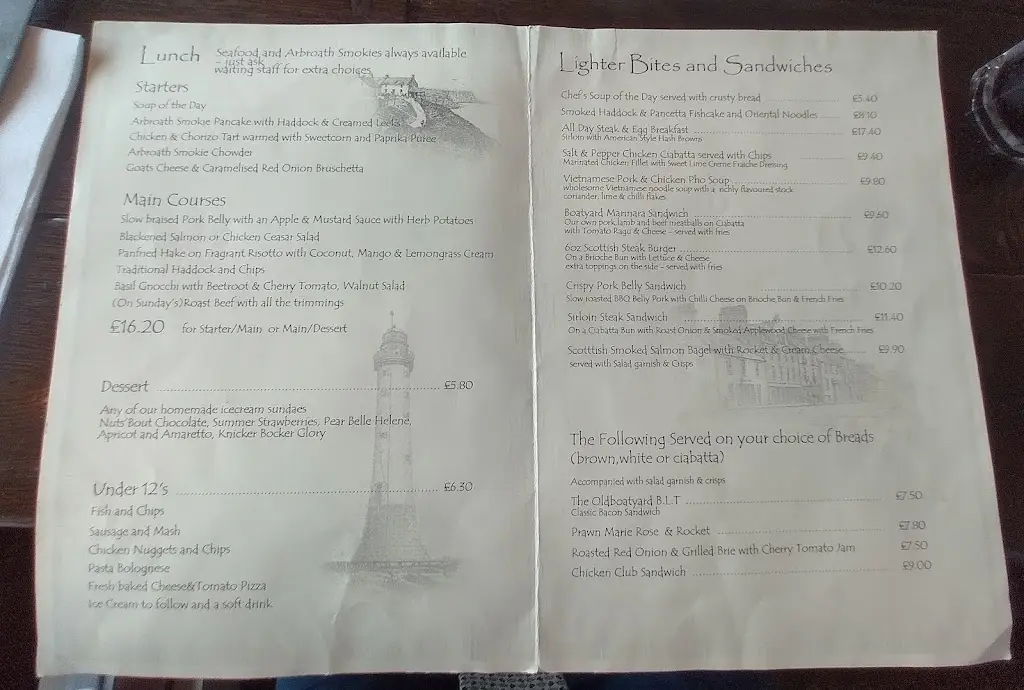 Lunch Seafood and Arbroath Smokies always available
- just ask
waiting staff for extra choices
Starters
Soup of the Day
Arbroath Smokie Pancake with Haddock & Creamed Leeks
Chicken & Chorizo Tart warmed with Sweetcorn and Paprika Puree
Arbroath Smokie Chowder
Goats Cheese & Caramelised Red Onion Bruschetta
Main Courses
Slow braised Pork Belly with an Apple & Mustard Sauce with Herb Potatoes
Blackened Salmon or Chicken Ceasar Salad
Panfried Hake on Fragrant Risotto with Coconut, Mango & Lemongrass Cream
Traditional Haddock and Chips
Basil Gnocchi with Beetroot & Cherry Tomato, Walnut Salad
(On Sunday's) Roast Beef with all the trimmings
£16.20 for Starter/Main or Main/Dessert
Dessert £5.80
Any of our homemade icecream sundaes
Nuts Bout Chocolate, Summer Strawberries, Pear Belle Helene,
Apricot and Amaretto, Knicker Bocker Glory
Under 12's £6.30
Fish and Chips
Sausage and Mash
Chicken Nuggets and Chips
Pasta Bolognese
Fresh baked Cheese&Tomato Pizza
Ice Cream to follow and a soft drink
Lighter Bites and Sandwiches
Chef's Soup of the Day served with crusty bread £5.40
Smoked Haddock & Pancetta Fishcake and Oriental Noodles £8.10
All Day Steak & Egg Breakfast £17.40
Sirloin with American Style Hash Browns
Salt & Pepper Chicken Ciabatta served with Chips £9.40
Marinated Chicken Fillet with Sweet Lime Creme Fraiche Dressing
Vietnamese Pork & Chicken Pho Soup £9.80
wholesome Vietnamese noodle soup with a richly flavoured stock
coriander, lime & chilli flakes
Boatyard Marinara Sandwich £9.60
Our own pork,lamb and beef meatballs on Ciabatta
with Tomato Ragu & Cheese - served with fries
6oz Scottish Steak Burger £12.60
On a Brioche Bun with Lettuce & Cheese
extra toppings on the side - served with fries
Crispy Pork Belly Sandwich £10.20
Slow roasted BBQ Belly Pork with Chilli Cheese on Brioche Bun & French Fries
Sirloin Steak Sandwich £11.40
On a Ciabatta Bun with Roast Onion & Smoked Applewood Cheese with French Fries
Scotttish Smoked Salmon Bagel with Rocket & Cream Cheese £9.90
served with Salad garnish & Crisps
The Following Served on your choice of Breads
(brown,white or ciabatta)
Accompanied with salad garnish & crisps
The Oldboatyard B.L.T £7.50
Classic Bacon Sandwich
Prawn Marie Rose & Rocket £7.80
Roasted Red Onion & Grilled Brie with Cherry Tomato Jam £7.50
Chicken Club Sandwich £9.00